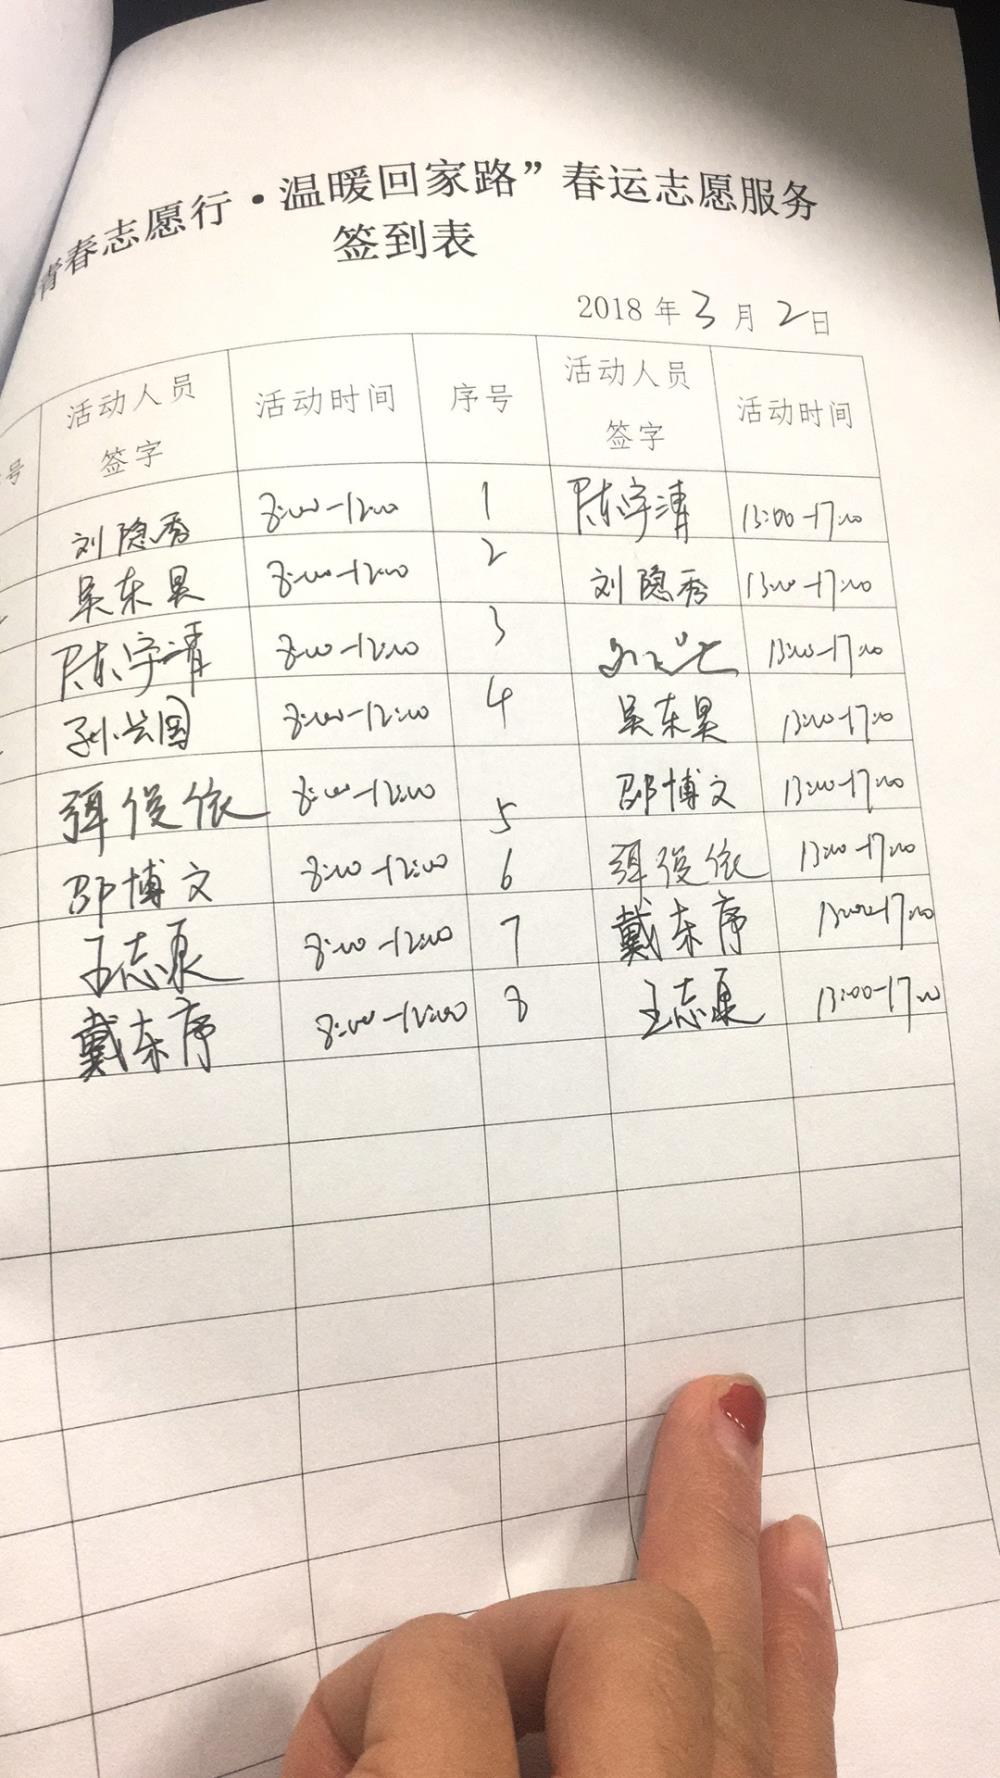 青春志愿行·温暖回家路”春运志愿服务
签到表
2018年3月2日
号 活动人员签字 活动时间 序号 活动人员签字 活动时间
刘隐秀 8:00-12:00 1 陈宇清 13:00-17:00
吴东昊 8:00-12:00 2 刘隐秀 13:00-17:00
陈宇清 8:00-12:00 3 13:00-17:00
孙兴国 8:00-12:00 4 吴东昊 13:00-17:00
俊依 8:00-12:00 5 邵博文 13:00-17:00
邵博文 8:00-12:00 6 俊依 13:00-17:00
王志 8:00-12:00 7 戴东序 13:00-17:00
戴东序 8:00-12:00 8 王志 13:00-17:00